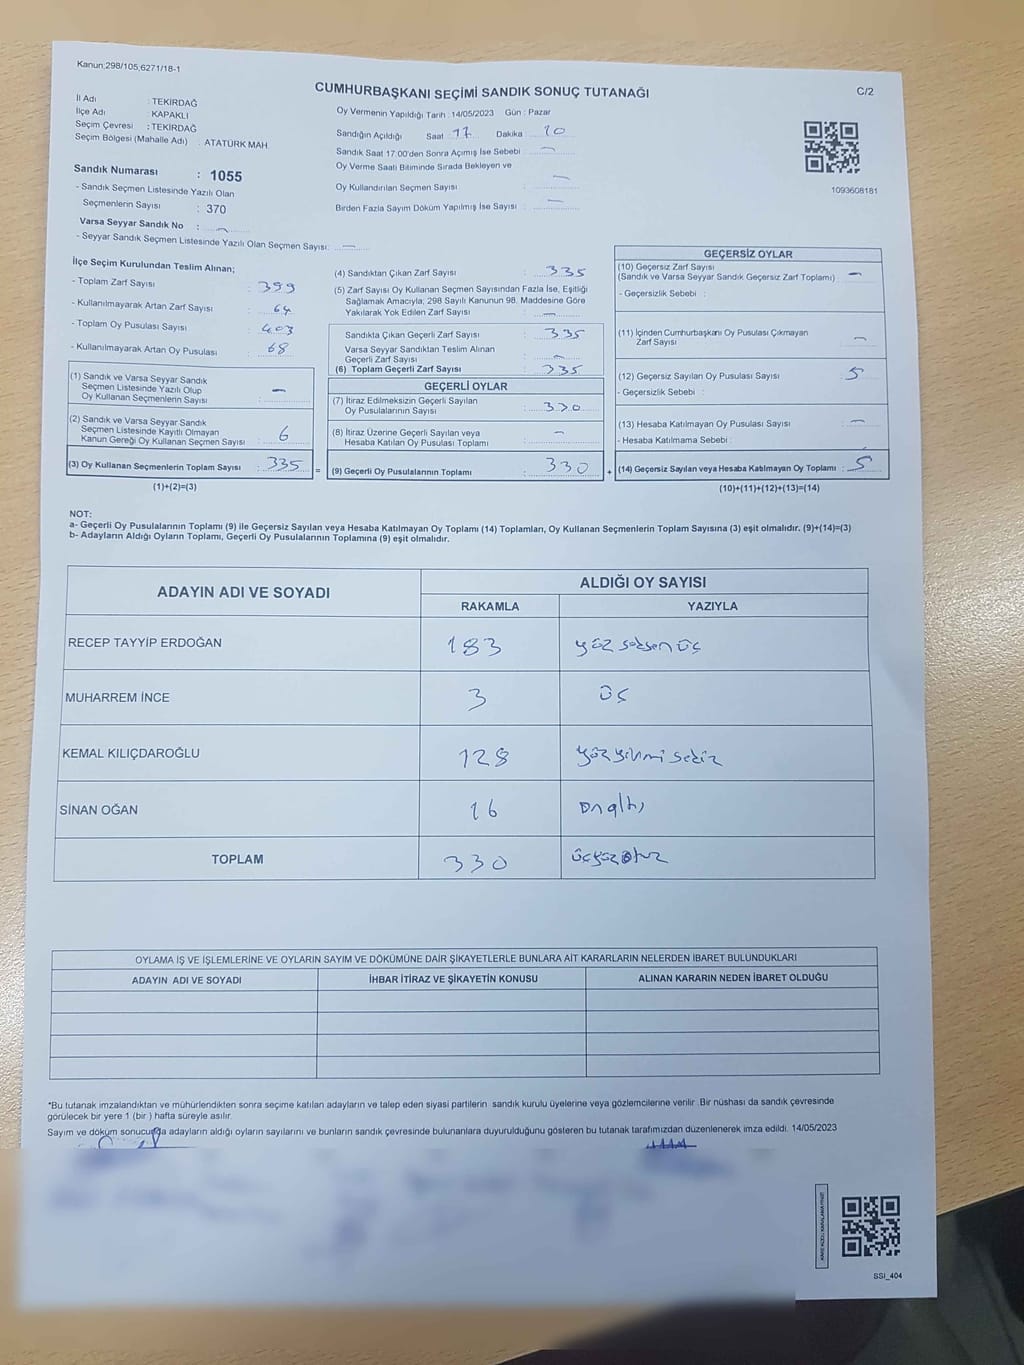 Kanun:298/105,6271/18-1
CUMHURBAŞKANI SEÇİMİ SANDIK SONUÇ TUTANAĞI
C/2
İl Adı : TEKİRDAĞ
İlçe Adı : KAPAKLI
Seçim Çevresi : TEKİRDAĞ
Seçim Bölgesi (Mahalle Adı) : ATATÜRK MAH.
Oy Vermenin Yapıldığı Tarih : 14/05/2023 Gün : Pazar
Sandığın Açıldığı Saat 17 Dakika 10
Sandık Saat 17:00'den Sonra Açımış İse Sebebi : —
Oy Verme Saati Bitiminde Sırada Bekleyen ve
Oy Kullandırılan Seçmen Sayısı : —
Birden Fazla Sayım Döküm Yapılmış İse Sayısı : —
1093608181
Sandık Numarası : 1055
- Sandık Seçmen Listesinde Yazılı Olan
Seçmenlerin Sayısı : 370
Varsa Seyyar Sandık No : —
- Seyyar Sandık Seçmen Listesinde Yazılı Olan Seçmen Sayısı: —
İlçe Seçim Kurulundan Teslim Alınan;
- Toplam Zarf Sayısı : 399
- Kullanılmayarak Artan Zarf Sayısı : 64
- Toplam Oy Pusulası Sayısı : 403
- Kullanılmayarak Artan Oy Pusulası : 68
(1) Sandık ve Varsa Seyyar Sandık
Seçmen Listesinde Yazılı Olup
Oy Kullanan Seçmenlerin Sayısı : —
(2) Sandık ve Varsa Seyyar Sandık
Seçmen Listesinde Kayıtlı Olmayan
Kanun Gereği Oy Kullanan Seçmen Sayısı : 6
(3) Oy Kullanan Seçmenlerin Toplam Sayısı : 335 =
(1)+(2)=(3)
(4) Sandıktan Çıkan Zarf Sayısı : 335
(5) Zarf Sayısı Oy Kullanan Seçmen Sayısından Fazla İse, Eşitliği
Sağlamak Amacıyla; 298 Sayılı Kanunun 98. Maddesine Göre
Yakılarak Yok Edilen Zarf Sayısı : —
Sandıkta Çıkan Geçerli Zarf Sayısı : 335
Varsa Seyyar Sandıktan Teslim Alınan
Geçerli Zarf Sayısı : —
(6) Toplam Geçerli Zarf Sayısı : 335
GEÇERLİ OYLAR
(7) İtiraz Edilmeksizin Geçerli Sayılan
Oy Pusulalarının Sayısı : 330
(8) İtiraz Üzerine Geçerli Sayılan veya
Hesaba Katılan Oy Pusulası Toplamı : —
(9) Geçerli Oy Pusulalarının Toplamı : 330 +
GEÇERSİZ OYLAR
(10) Geçersiz Zarf Sayısı
(Sandık ve Varsa Seyyar Sandık Geçersiz Zarf Toplamı) : —
- Geçersizlik Sebebi :
(11) İçinden Cumhurbaşkanı Oy Pusulası Çıkmayan
Zarf Sayısı : —
(12) Geçersiz Sayılan Oy Pusulası Sayısı : 5
- Geçersizlik Sebebi :
(13) Hesaba Katılmayan Oy Pusulası Sayısı : —
- Hesaba Katılmama Sebebi :
(14) Geçersiz Sayılan veya Hesaba Katılmayan Oy Toplamı : 5
(10)+(11)+(12)+(13)=(14)
NOT:
a- Geçerli Oy Pusulalarının Toplamı (9) ile Geçersiz Sayılan veya Hesaba Katılmayan Oy Toplamı (14) Toplamları, Oy Kullanan Seçmenlerin Toplam Sayısına (3) eşit olmalıdır. (9)+(14)=(3)
b- Adayların Aldığı Oyların Toplamı, Geçerli Oy Pusulalarının Toplamına (9) eşit olmalıdır.
ADAYIN ADI VE SOYADI ALDIĞI OY SAYISI
RAKAMLA YAZIYLA
RECEP TAYYİP ERDOĞAN 183 yüz seksen üç
MUHARREM İNCE 3 üç
KEMAL KILIÇDAROĞLU 128 yüz yirmi sekiz
SİNAN OĞAN 16 onaltı
TOPLAM 330 üçyüz otuz
OYLAMA İŞ VE İŞLEMLERİNE VE OYLARIN SAYIM VE DÖKÜMÜNE DAİR ŞİKAYETLERLE BUNLARA AİT KARARLARIN NELERDEN İBARET BULUNDUKLARI
ADAYIN ADI VE SOYADI İHBAR İTİRAZ VE ŞİKAYETİN KONUSU ALINAN KARARIN NEDEN İBARET OLDUĞU
*Bu tutanak imzalandıktan ve mühürlendikten sonra seçime katılan adayların ve talep eden siyasi partilerin sandık kurulu üyelerine veya gözlemcilerine verilir. Bir nüshası da sandık çevresinde
görülecek bir yere 1 (bir ) hafta süreyle asılır.
Sayım ve döküm sonucunda adayların aldığı oyların sayılarını ve bunların sandık çevresinde bulunanlara duyurulduğunu gösteren bu tutanak tarafımızdan düzenlenerek imza edildi. 14/05/2023
SSI_404